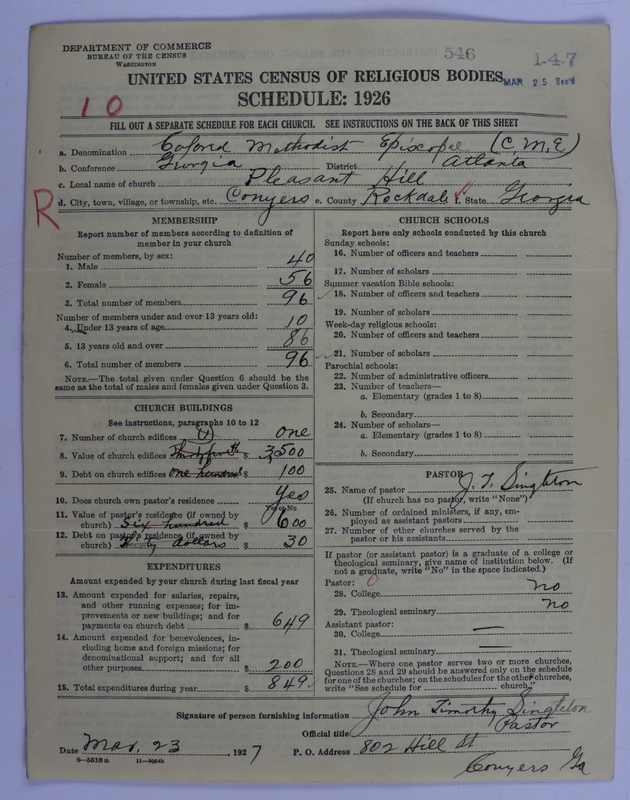 DEPARTMENT OF COMMERCE
BUREAU OF THE CENSUS
WASHINGTON
546
1-4-7
MAR 25 Rec'd
UNITED STATES CENSUS OF RELIGIOUS BODIES
SCHEDULE: 1926
10
FILL OUT A SEPARATE SCHEDULE FOR EACH CHURCH. SEE INSTRUCTIONS ON THE BACK OF THIS SHEET
a. Denomination Colored Methodist Episcopal (C.M.E)
b. Conference Georgia District Atlanta
c. Local name of church Pleasant Hill
R
d. City, town, village, or township, etc. Conyers e. County Rockdale f. State Georgia
MEMBERSHIP
Report number of members according to definition of
member in your church
Number of members, by sex:
1. Male 40
2. Female 56
3. Total number of members 96
Number of members under and over 13 years old:
4. Under 13 years of age 10
5. 13 years old and over 86
6. Total number of members 96
NOTE.—The total given under Question 6 should be the
same as the total of males and females given under Question 3.
CHURCH BUILDINGS
See instructions, paragraphs 10 to 12
7. Number of church edifices (1) one
8. Value of church edifices $ 3500
9. Debt on church edifices one hundred $ 100
10. Does church own pastor's residence Yes
Yes or No
11. Value of pastor's residence (if owned by
church) Six hundred $ 600
12. Debt on pastor's residence (if owned by
church) dollars $ 30
EXPENDITURES
Amount expended by your church during last fiscal year
13. Amount expended for salaries, repairs,
and other running expenses; for im-
provements or new buildings; and for
payments on church debt $ 649
14. Amount expended for benevolences, in-
cluding home and foreign missions; for
denominational support; and for all
other purposes $ 200
15. Total expenditures during year $ 849
CHURCH SCHOOLS
Report here only schools conducted by this church
Sunday schools:
16. Number of officers and teachers
17. Number of scholars
Summer vacation Bible schools:
18. Number of officers and teachers
19. Number of scholars
Week-day religious schools:
20. Number of officers and teachers
21. Number of scholars
Parochial schools:
22. Number of administrative officers
23. Number of teachers—
a. Elementary (grades 1 to 8)
b. Secondary
24. Number of scholars—
a. Elementary (grades 1 to 8)
b. Secondary
PASTOR
25. Name of pastor J. T. Singleton
(If church has no pastor, write "None")
26. Number of ordained ministers, if any, em-
ployed as assistant pastors
27. Number of other churches served by the
pastor or his assistants
If pastor (or assistant pastor) is a graduate of a college or
theological seminary, give name of institution below. (If
not a graduate, write "No" in the space indicated.)
Pastor: 0
28. College no
29. Theological seminary no
Assistant pastor:
30. College —
31. Theological seminary —
NOTE.—Where one pastor serves two or more churches,
Questions 28 and 29 should be answered only on the schedule
for one of the churches; on the schedules for the other churches,
write "See schedule for church."
Signature of person furnishing information John Timothy Singleton
Official title Pastor
Date Mar. 23, 1927 P. O. Address 802 Hill St
8—5518a 11—9054b
Conyers Ga